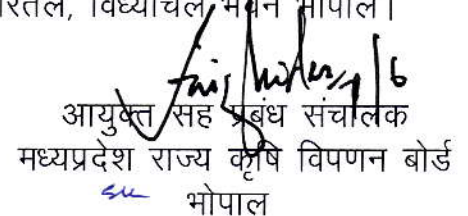 विंध्याचल भवन भोपाल।
आयुक्त सह प्रबंध संचालक
मध्यप्रदेश राज्य कृषि विपणन बोर्ड
भोपाल